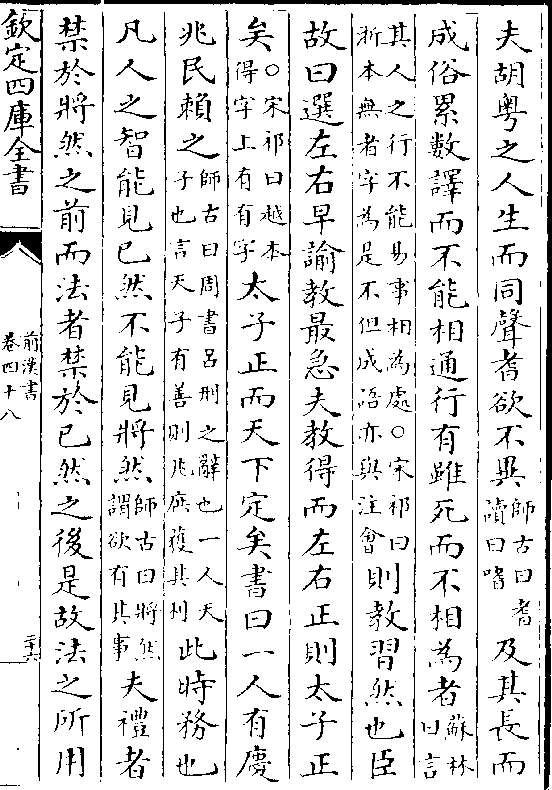 夫胡粤之人生而同聲耆欲不異師古曰耆讀曰嗜及其長而
成俗累數譯而不能相通行有雖死而不相為者蘇林曰言
其人之行不能易事相為處○宋祁曰浙本無者字為是不但成語亦與注會則教習然也臣
故曰選左右早諭教最急夫教得而左右正則太子正
矣○宋祁曰越本得字上有有字太子正而天下定矣書曰一人有慶
兆民賴之師古曰周書呂刑之辭也一人天子也言天子有善則兆庶獲其利此時務也
凡人之智能見已然不能見將然師古曰將然謂欲有其事夫禮者
禁於將然之前而法者禁於已然之後是故法之所用
欽定四庫全書
前漢書
卷四十八
二六